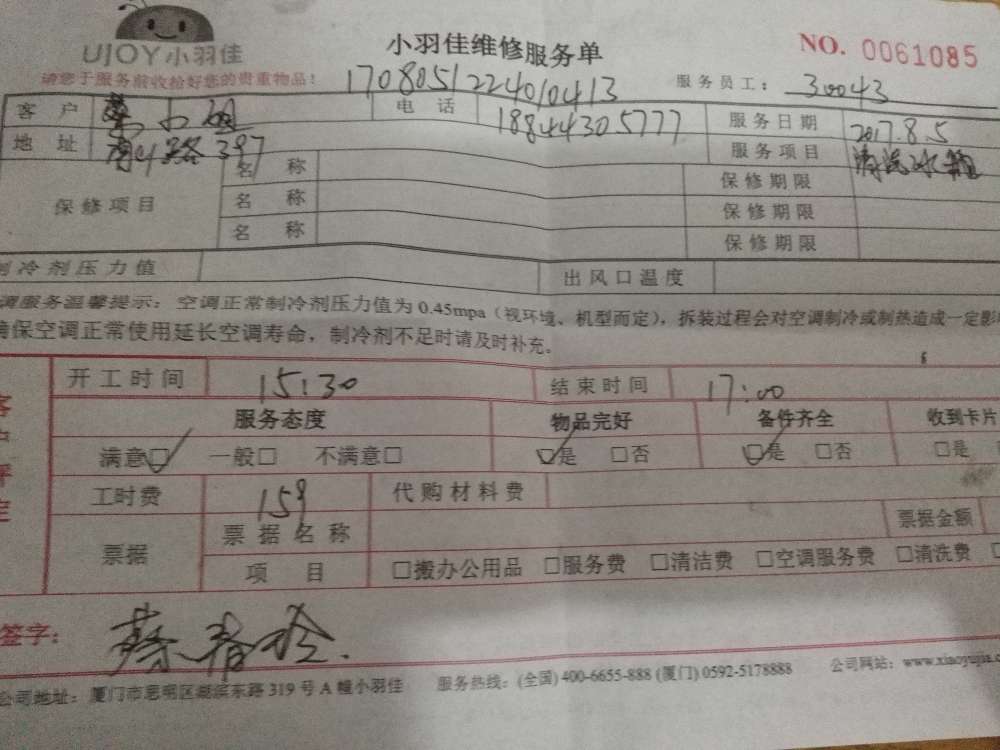 UJOY小羽佳
小羽佳维修服务单
NO. 0061085
请您于服务前收拾好您的贵重物品!
1708051224010413
服务员工: 30043
客 户
电 话 18844305777
服务日期 2017.8.5
地 址 路397
服务项目 清洗冰箱
保修项目
名 称 保修期限
名 称 保修期限
名 称 保修期限
制冷剂压力值 出风口温度
调服务温馨提示: 空调正常制冷剂压力值为0.45mpa(视环境、机型而定), 拆装过程会对空调制冷或制热造成一定影
确保空调正常使用延长空调寿命, 制冷剂不足时请及时补充。
开工时间 15:30 结束时间 17:00
服务态度 物品完好 备件齐全 收到卡片
满意□ 一般□ 不满意□ □是 □否 □是 □否 □是
工时费 159 代购材料费
票据 票据名称 票据金额
项 目 □搬办公用品 □服务费 □清洁费 □空调服务费 □清洗费
签字: 蔡春玲
公司地址: 厦门市思明区湖滨东路319号A幢小羽佳 服务热线: (全国) 400-6655-888 (厦门) 0592-5178888 公司网站: www.xiaoyujia.c